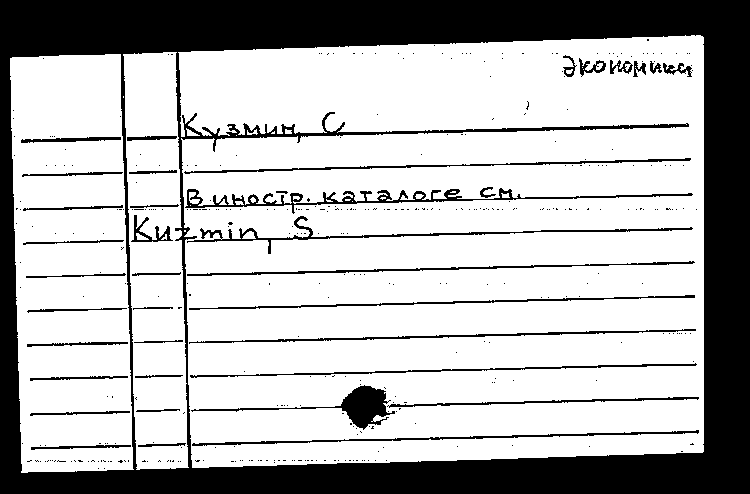 Экономики
Кузмин, С
В иностр. каталоге см.
Kuzmin, S